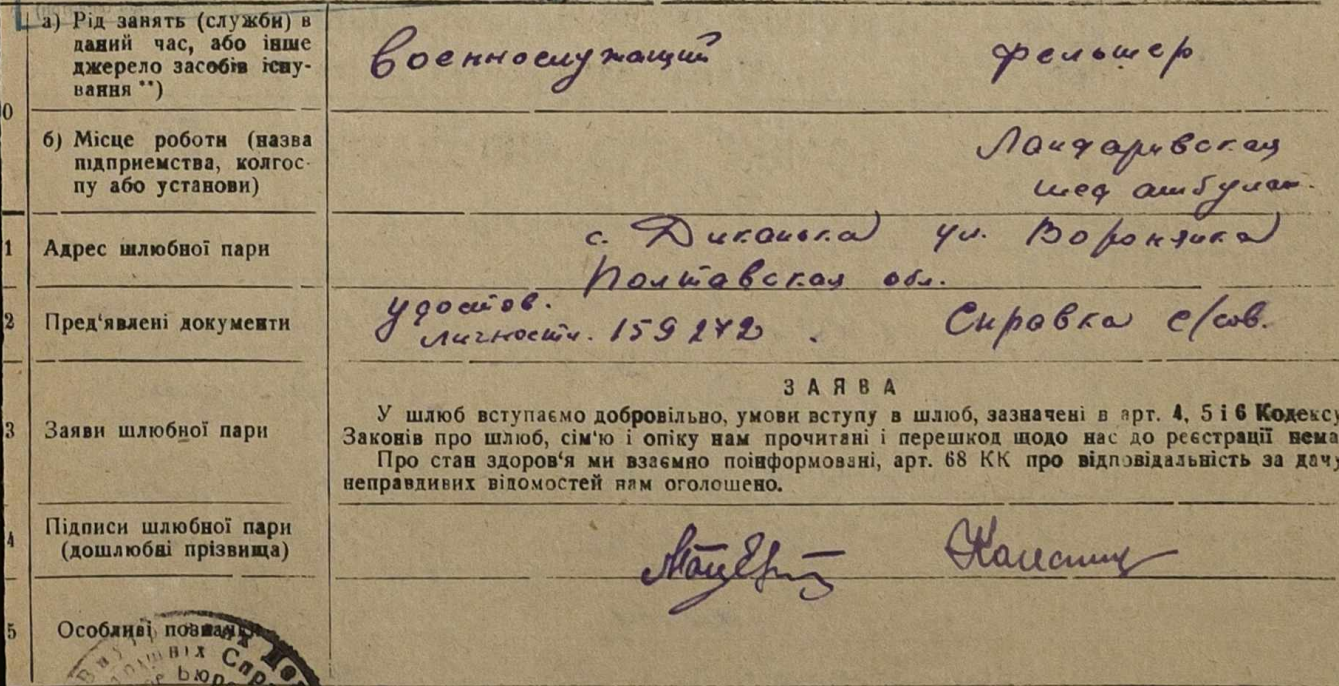 а) Рід занять (служби) в
даний час, або інше
джерело засобів існу-
вання **)
военнослужащий фельшер
0
б) Місце роботи (назва
підприємства, колгос-
пу або установи)
мед амбулат.
1 Адрес шлюбної пари
с. Диканька ул. Воронянка
Полтавская обл.
2 Пред'явлені документи
удостов.
личности. 159272 . Справка с/сов.
ЗАЯВА
3 Заяви шлюбної пари
У шлюб вступаємо добровільно, умови вступу в шлюб, зазначені в арт. 4, 5 і 6 Кодексу
Законів про шлюб, сім'ю і опіку нам прочитані і перешкод щодо нас до реєстрації нема
Про стан здоров'я ми взаємно поінформовані, арт. 68 КК про відповідальність за дачу
неправдивих відомостей нам оголошено.
4 Підписи шлюбної пари
(дошлюбні прізвища)
5 Особливі позначки